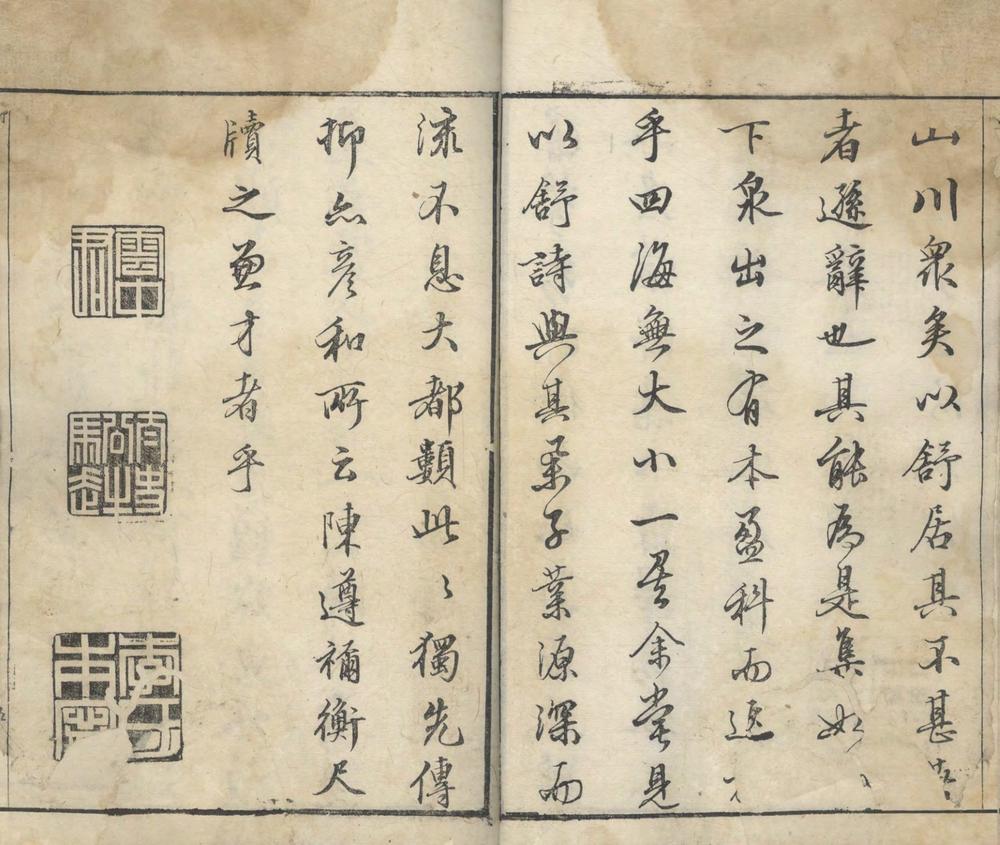 山川衆矣以舒居其不甚
者遜辭也其能為是集如
下泉出之有本盈科而逐
乎四海無大小一是余嘗見
以舒詩與其弟子業源深而
流不息大都類此此獨先傳
抑亦彥和所云陳遵禰衡尺
牘之兼才者乎